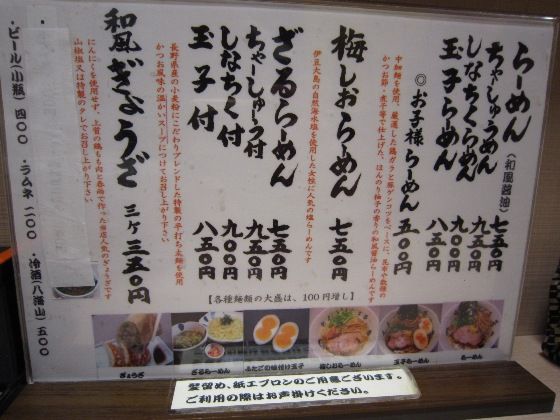 らーめん(和風醤油) 七五〇円
ちゃーしゅうめん 九五〇円
しなちくらーめん 九〇〇円
玉子らーめん 八五〇円
◎お子様らーめん 五〇〇円
中細麺を使用、厳選した鶏ガラと豚ゲンコツをベースに、昆布や数種の
かつお節・煮干等で仕上げた、ほんのり柚子の香りの和風醤油らーめんです
梅しおらーめん 七五〇円
伊豆大島の自然海水塩を使用した女性に人気の塩らーめんです
ざるらーめん 七五〇円
ちゃーしゅー付 九五〇円
しなちく付 九〇〇円
玉子付 八五〇円
長野県産の小麦粉にこだわりブレンドした特製の平打ち太麺を使用
かつお風味の温かいスープにつけてお召し上がり下さい
和風ぎょうざ 三ヶ 三五〇円
にんにくを使用せず、上質の鶏もも肉と春雨で作った当店人気のぎょうざです
山椒塩又は特製のタレでお召し上がり下さい
・ビール(小瓶) 四〇〇 ・ラムネ 二〇〇 ・冷酒(八海山) 五〇〇
【各種麺類の大盛は、100円増し】
ぎょうざ
ざるらーめん
ふたごの味付け玉子
梅しおらーめん
玉子らーめん
らーめん
髪留め、紙エプロンのご用意ございます。
ご利用の際はお声掛けください。